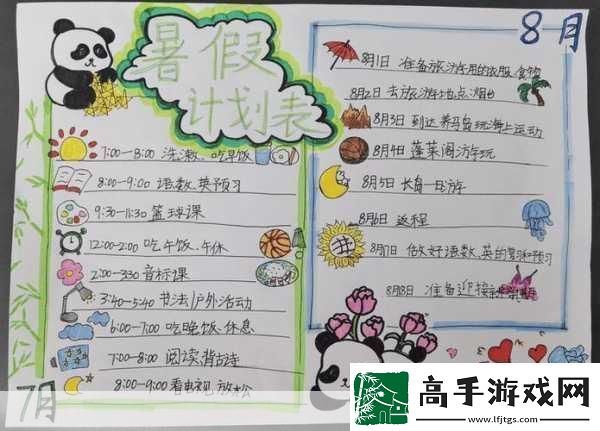 暑假
计划表
7:00—8:00 洗漱、吃早饭
8:00—9:00 语数英预习
9:30—11:30 篮球课
12:00—2:00 吃午饭、午休
2:00—3:30 音标课
3:40—5:40 书法/户外活动
6:00—7:00 吃晚饭、休息
7:00—8:00 阅读、背古诗
8:00—9:00 看电视 放松
7月
8月
8月1日 准备旅游用的衣服、食物
8月2日 去旅游地点:烟台
8月3日 到达养马岛玩海上运动
8月4日 蓬莱阁游玩
8月5日 长岛一日游
8月6日 返程
8月7日 做好语数、英的复习和预习
8月8日 准备迎接新学期
高手游戏网
www.lfjtgs.com